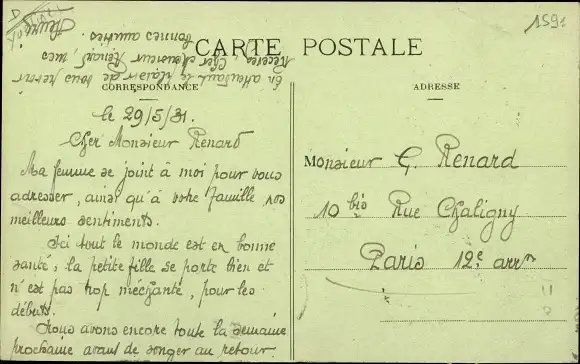 1591
CARTE POSTALE
CORRESPONDANCE
ADRESSE
le 29/5/31.
Cher Monsieur Renard
Ma femme se joint à moi pour vous
adresser, ainsi qu'à votre famille nos
meilleurs sentiments.
Ici tout le monde est en bonne
santé, la petite fille se porte bien et
n'est pas trop méchante, pour les
débuts.
Nous avons encore toute la semaine
prochaine avant de songer au retour.
En attendant le plaisir de vous revoir
Recevez, Cher Monsieur Renard, mes
bonnes amitiés.
Monsieur G. Renard
10 bis Rue Chaligny
Paris 12e arrt